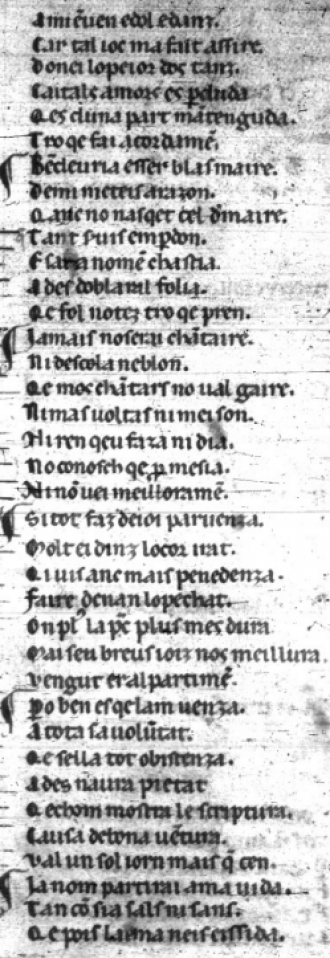 A mi ẽuen e dol e danz.
Car tal ioc ma fait assire.
Donei lo peior dos tanz.
Caitals amors es ꝑduda
Q es duna part mãtenguda.
Tro qe fai acordamẽ.
Bẽ deuria esser blasmaire.
De mi meteis a razon.
Q anc no nasqet cel d maire.
Tant suis em ꝑdon.
E sara nomẽ chastia.
A des doblaral folia.
Qe fol no tez tro qe pren.
Iamais no serai chãtaire.
Ni descola neblon.
Qe mos chãtars no ual gaire.
Ni mas uoltas ni mei son.
Ni ren qeu faza ni dia.
No conosch qe ꝓ mesia.
Ni nõ uei meilloramẽ.
Si tot faz de ioi paruenza.
Molt ei dinz lo cor irat.
Qi uis anc mais penedenza.
Faire denan lo pechat.
On pl la pc plus mes dura
Mai seu breus iorz nos meillura.
Vengut er al partimẽ.
Po ben es qe lam uenza.
A tota sa uolũtat.
Qe sella tot obistenza.
A des naura pietat
Q e chom mostra le scriptura.
Causa de bona uẽtura.
Val un sol iorn mais q̃ cen.
Ia nom partirai a ma uida.
Tan cõ sia sals ni sans.
Qe pois larma neis eissida.